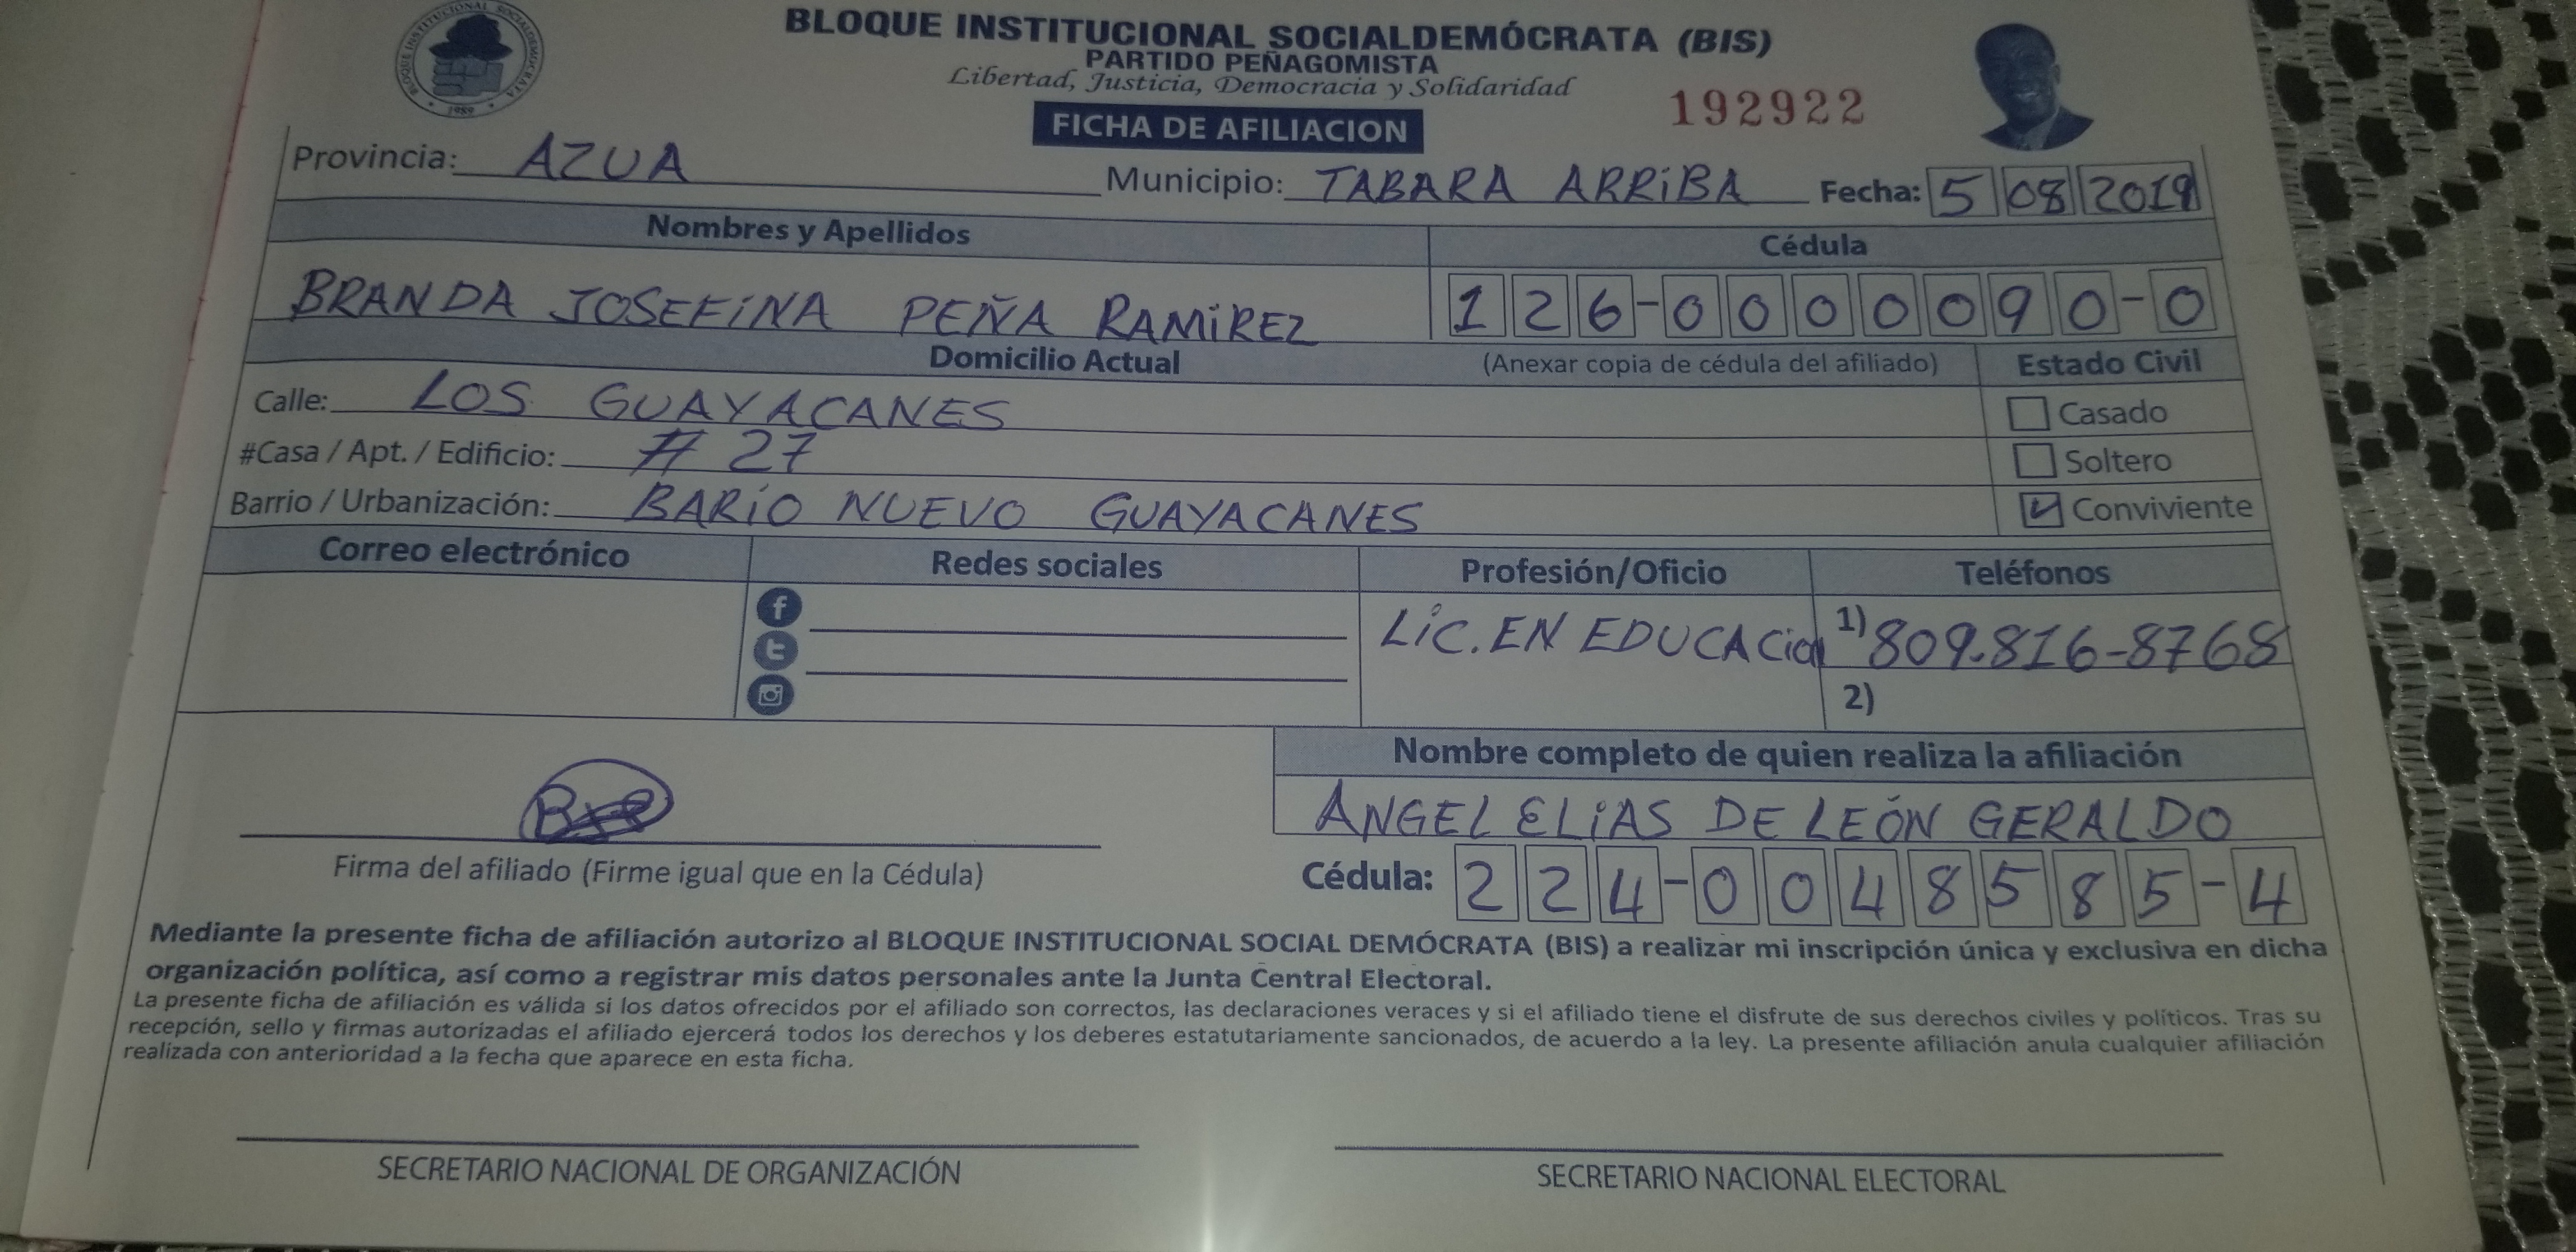 BLOQUE INSTITUCIONAL SOCIALDEMÓCRATA
1989
BLOQUE INSTITUCIONAL SOCIALDEMÓCRATA (BIS)
PARTIDO PEÑAGOMISTA
Libertad, Justicia, Democracia y Solidaridad
192922
FICHA DE AFILIACION
Provincia: AZUA Municipio: TABARA ARRIBA Fecha: 5 08 2019
Nombres y Apellidos Cédula
BRANDA JOSEFINA PEÑA RAMIREZ 126-0000090-0
Domicilio Actual (Anexar copia de cédula del afiliado) Estado Civil
Calle: LOS GUAYACANES Casado
#Casa / Apt. / Edificio: # 27 Soltero
Barrio / Urbanización: BARIO NUEVO GUAYACANES Conviviente
Correo electrónico Redes sociales Profesión/Oficio Teléfonos
LIC. EN EDUCACION 1) 809-816-8768
2)
Nombre completo de quien realiza la afiliación
ANGEL ELIAS DE LEÓN GERALDO
Firma del afiliado (Firme igual que en la Cédula) Cédula: 224-0048585-4
Mediante la presente ficha de afiliación autorizo al BLOQUE INSTITUCIONAL SOCIAL DEMÓCRATA (BIS) a realizar mi inscripción única y exclusiva en dicha
organización política, así como a registrar mis datos personales ante la Junta Central Electoral.
La presente ficha de afiliación es válida si los datos ofrecidos por el afiliado son correctos, las declaraciones veraces y si el afiliado tiene el disfrute de sus derechos civiles y políticos. Tras su
recepción, sello y firmas autorizadas el afiliado ejercerá todos los derechos y los deberes estatutariamente sancionados, de acuerdo a la ley. La presente afiliación anula cualquier afiliación
realizada con anterioridad a la fecha que aparece en esta ficha.
SECRETARIO NACIONAL DE ORGANIZACIÓN SECRETARIO NACIONAL ELECTORAL